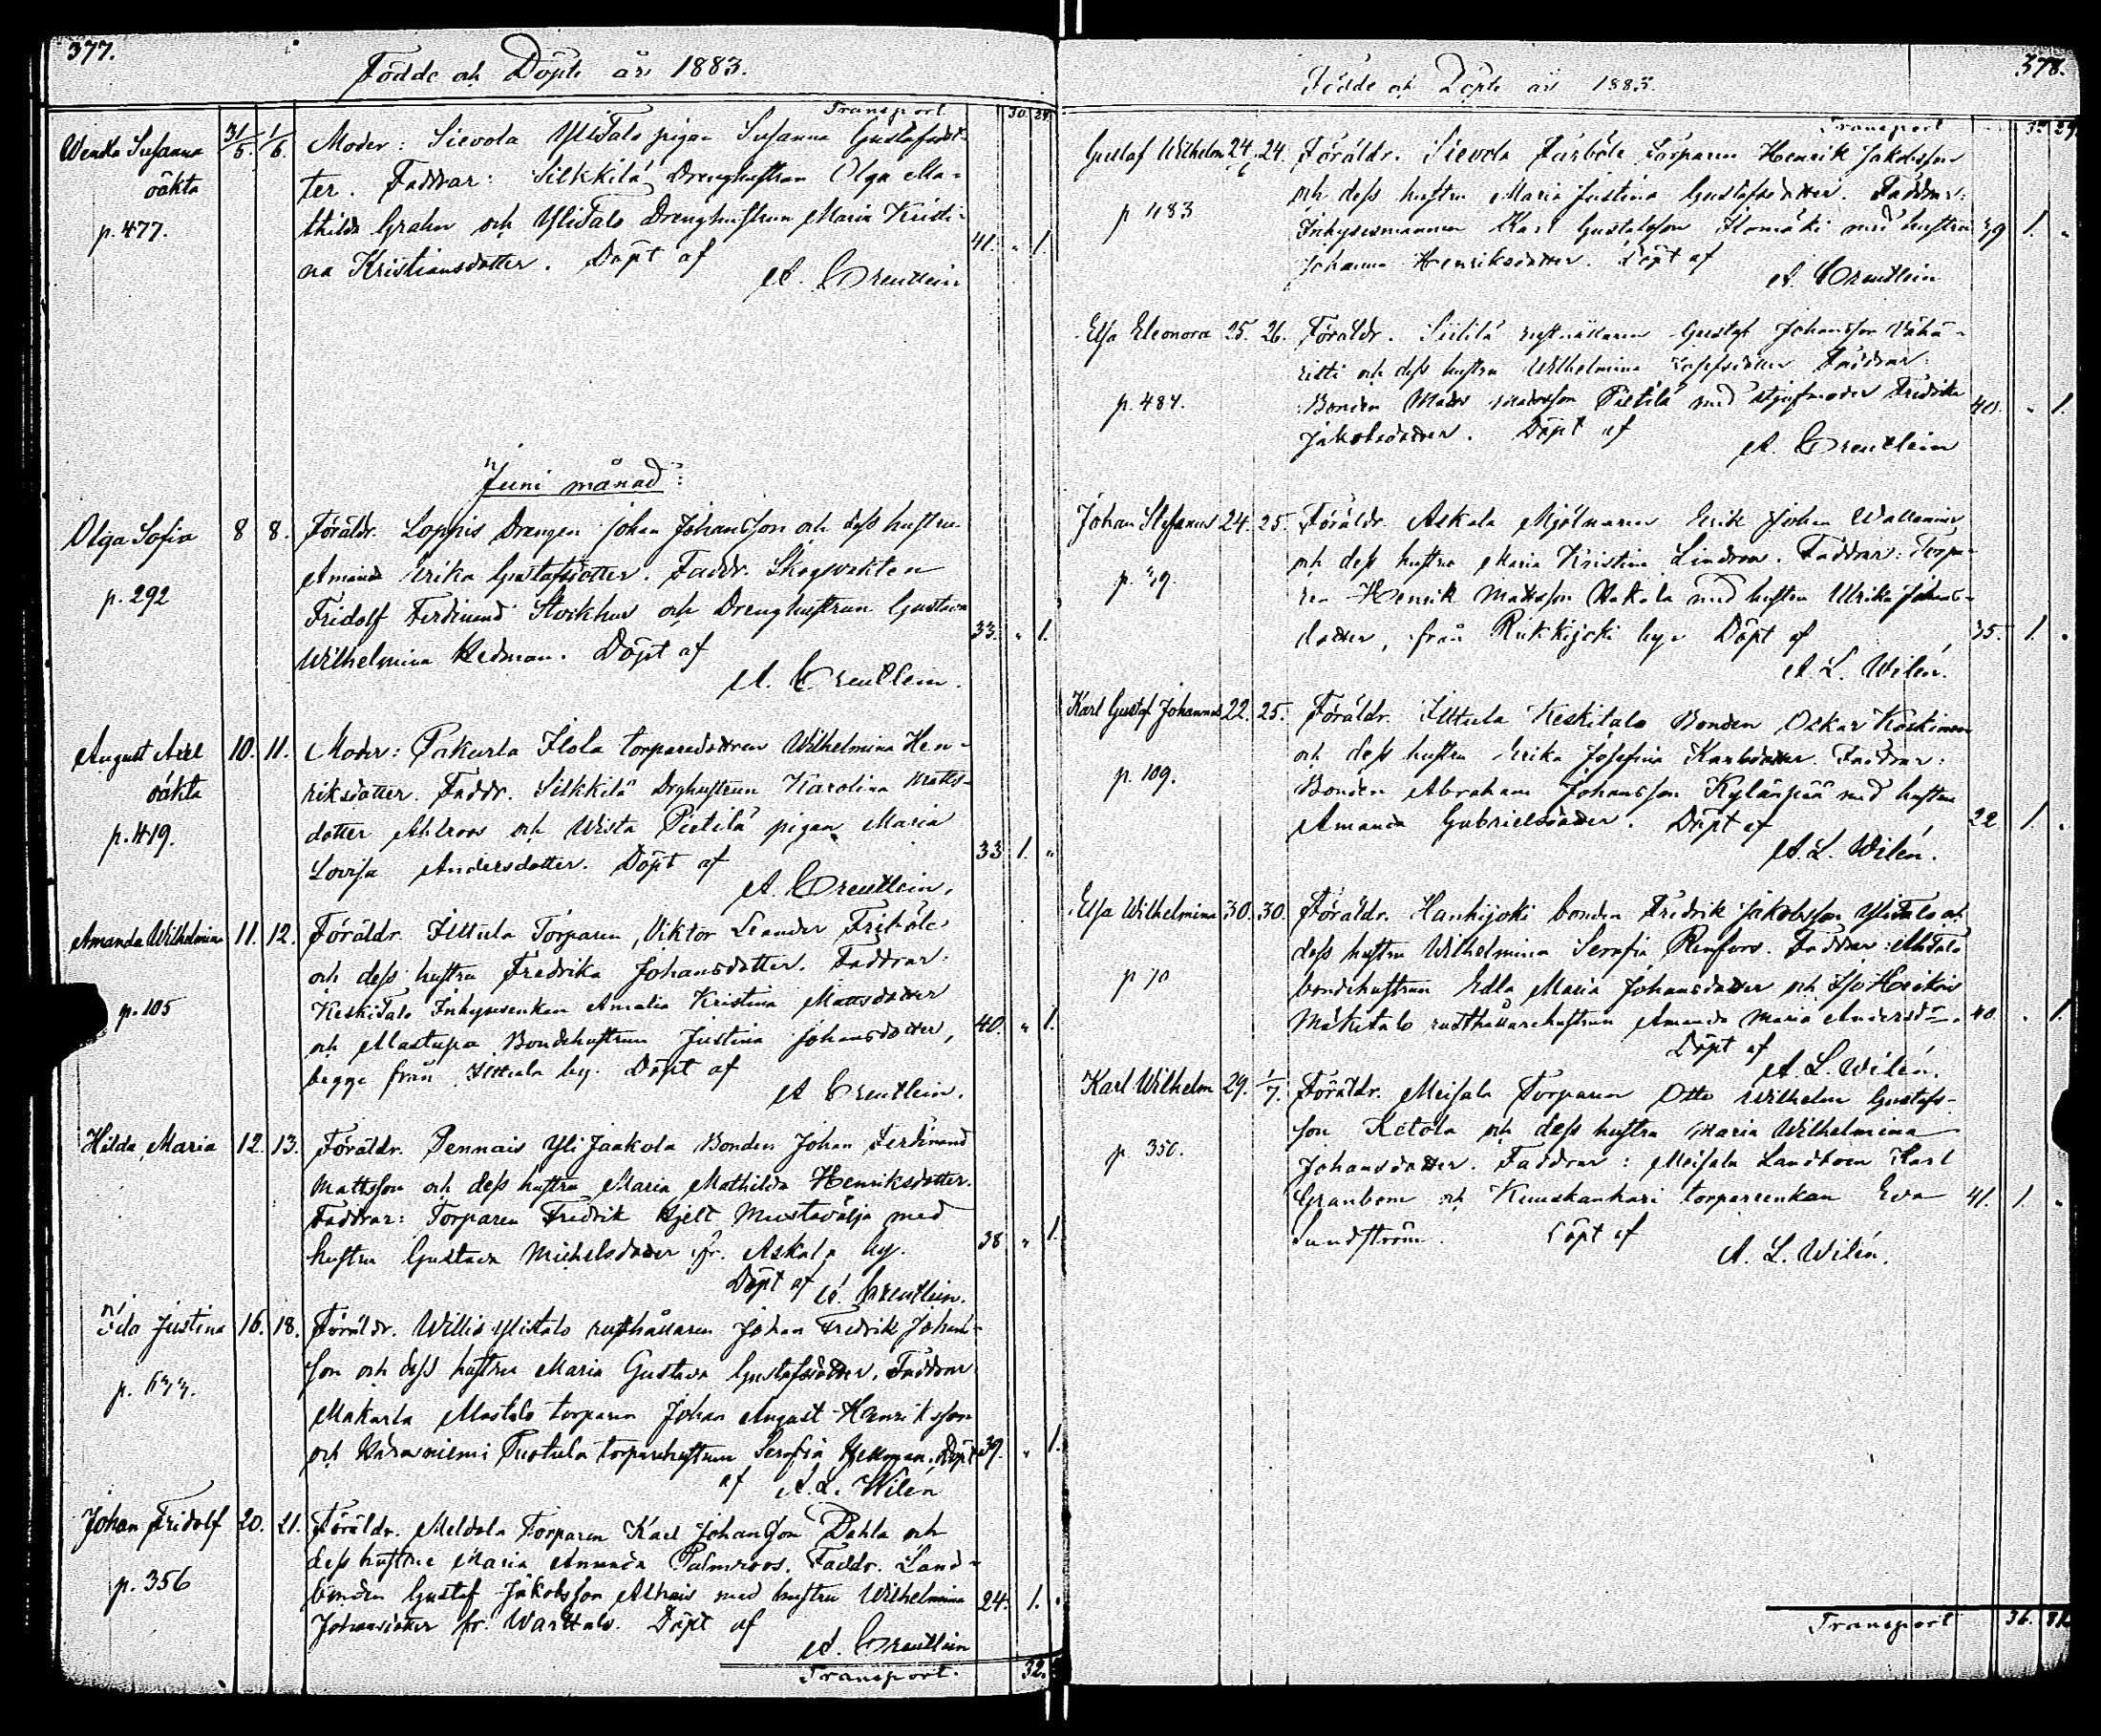 377.
Födde och Döpte år 1883.
Transport 30. 29.
Wendla Susanna 31/5. 1/6. Moder: Sievola Ylitalo pigan Susanna Gustafsdot-
oäkta ter. Faddrar: Silkkilä Drenghustrun Olga Ma-
p. 477. thilda Grahn och Ylitalo Drenghustrun Maria Kristi- 41. " 1.
na Kristiansdotter. Döpt af
A. Creutlein
"Juni månad":
Olga Sofia 8 8. Föräldr. Loppis Drengen Johan Johansson och dess hustru
Amanda Erika Gustafsdotter. Faddr. Skogvakten
p. 292 Fridolf Ferdinand Stockhus och Drenghustrun Gustava 33. " 1.
Wilhelmina Hedman. Döpt af
A. Creutlein.
August Axel 10. 11. Moder: Pakurla Ilola torparedottren Wilhelmina Hen-
oäkta riksdotter. Faddr. Silkkilä Drghustrun Karolina Matts-
p. 419. dotter Ahlroos och Wista Pietilä pigan Maria 33 1. "
Lovisa Andersdotter. Döpt af
A. Creutlein.
Amanda Wilhelmina 11. 12. Föräldr. Ilttula Torparen Viktor Leander Friböle
och dess hustru Fredrika Johansdotter. Faddrar:
p. 105 Keskitalo Inhysesenkan Amalia Kristina Mattsdotter 40. " 1.
och Mastupa Bondehustrun Justina Johansdotter,
begge från Ilttula by. Döpt af
A Creutlein.
Hilda Maria 12. 13. Föräldr. Pennais Yli Jaakola Bonden Johan Ferdinand
Mattsson och dess hustru Maria Mathilda Henriksdotter.
Faddrar: Torparen Fredrik Hjelt Mustavalja med
hustru Gustava Michelsdotter fr. Askala by. 38 " 1.
Döpt af A. Creutlein.
Ida Justina 16. 18. Föräldr. Willis Ylistalo rusthållaren Johan Fredrik Johans-
son och dess hustru Maria Gustava Gustafsdotter. Faddrar
p. Makarla Mastalo torparen Johan August Henriksson
och torparehustrun Serafia Hellman. Döpt 39. " 1.
af A. L. Wilén
Johan Fridolf 20. 21. Föräldr. Meldola Torparen Karl Johansson Dahla och
dess hustru Maria Amanda Palmroos. Faddr. Land-
p. 356 bonden Gustaf Jakobsson Alhais med hustru Wilhelmina 24. 1. "
Johansdotter fr. Warttalo. Döpt af
A. Creutlein
Transport. 32.
378.
Födde och Döpte år 1883.
Transport 32. 29.
Gustaf Wilhelm 24/6. 24. Föräldr. Sievola Färböle Torparen Henrik Jakobsson
och dess hustru Maria Justina Gustafsdotter. Faddrar:
p. 483 Inhysesmannen Karl Gustafsson Ilomäki med hustru 39 1. "
Johanna Henriksdotter. Döpt af
A. Creutlein
Elsa Eleonora 25. 26. Föräldr. Siitilä rusthållaren Gustaf Johansson Vähä-
ritti och dess hustru Wilhelmina Josefsdotter Faddrar:
p. 484. Bonden Mats Matsson Pietilä med stjufmoder Fredrika 40. " 1.
Jakobsdotter. Döpt af
A. Creutlein
Johan Stefanus 24. 25. Föräldr. Askala Mjölnaren Erik Johan Wallenius
och dess hustru Maria Kristina Lindroos. Faddrar: Torpa-
p. 49. ren Henrik Mattsson Hakala med hustru Ulrika Johans-
dotter, från Riikkijoki by. Döpt af 35. 1. "
A. L. Wilén.
Karl Gustaf Johannes 22. 25. Föräldr. Ilttula Keskitalo Bonden Oskar Koskinen
och dess hustru Erika Josefina Karlsdotter. Faddrar:
p. 109. Bonden Abraham Johansson Kylänpää med hustru
Amanda Gabrielsdotter. Döpt af 22 1. "
A. L. Wilén.
Elsa Wilhelmina 30. 30. Föräldr. Hankijoki bonden Fredrik Jakobsson Ylitalo och
dess hustru Wilhelmina Serafia Renfors. Faddrar: Alitalo
p 70 bondehustrun Edla Maria Johansdotter och Iso Heikoi
Mäkitalo rusthållarehustrun Amanda Maria Andersdr. 40 " 1.
Döpt af
A. L. Wilén.
Karl Wilhelm 29. 1/7. Föräldr. Meisala Torparen Otto Wilhelm Gustafs-
son Ketola och dess hustru Maria Wilhelmina
p 350. Johansdotter. Faddrar: Meisala Landtbon Karl
Granbom och Kuuskankari torpareenkan Eva 41. 1. "
Sundström. Döpt af
A. L. Wilén.
Transport 36. 31.